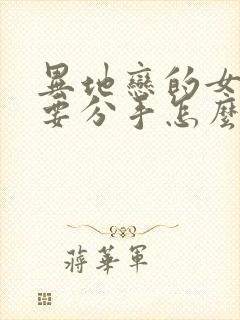 異地戀的女
要分手怎麼
蔣華軍